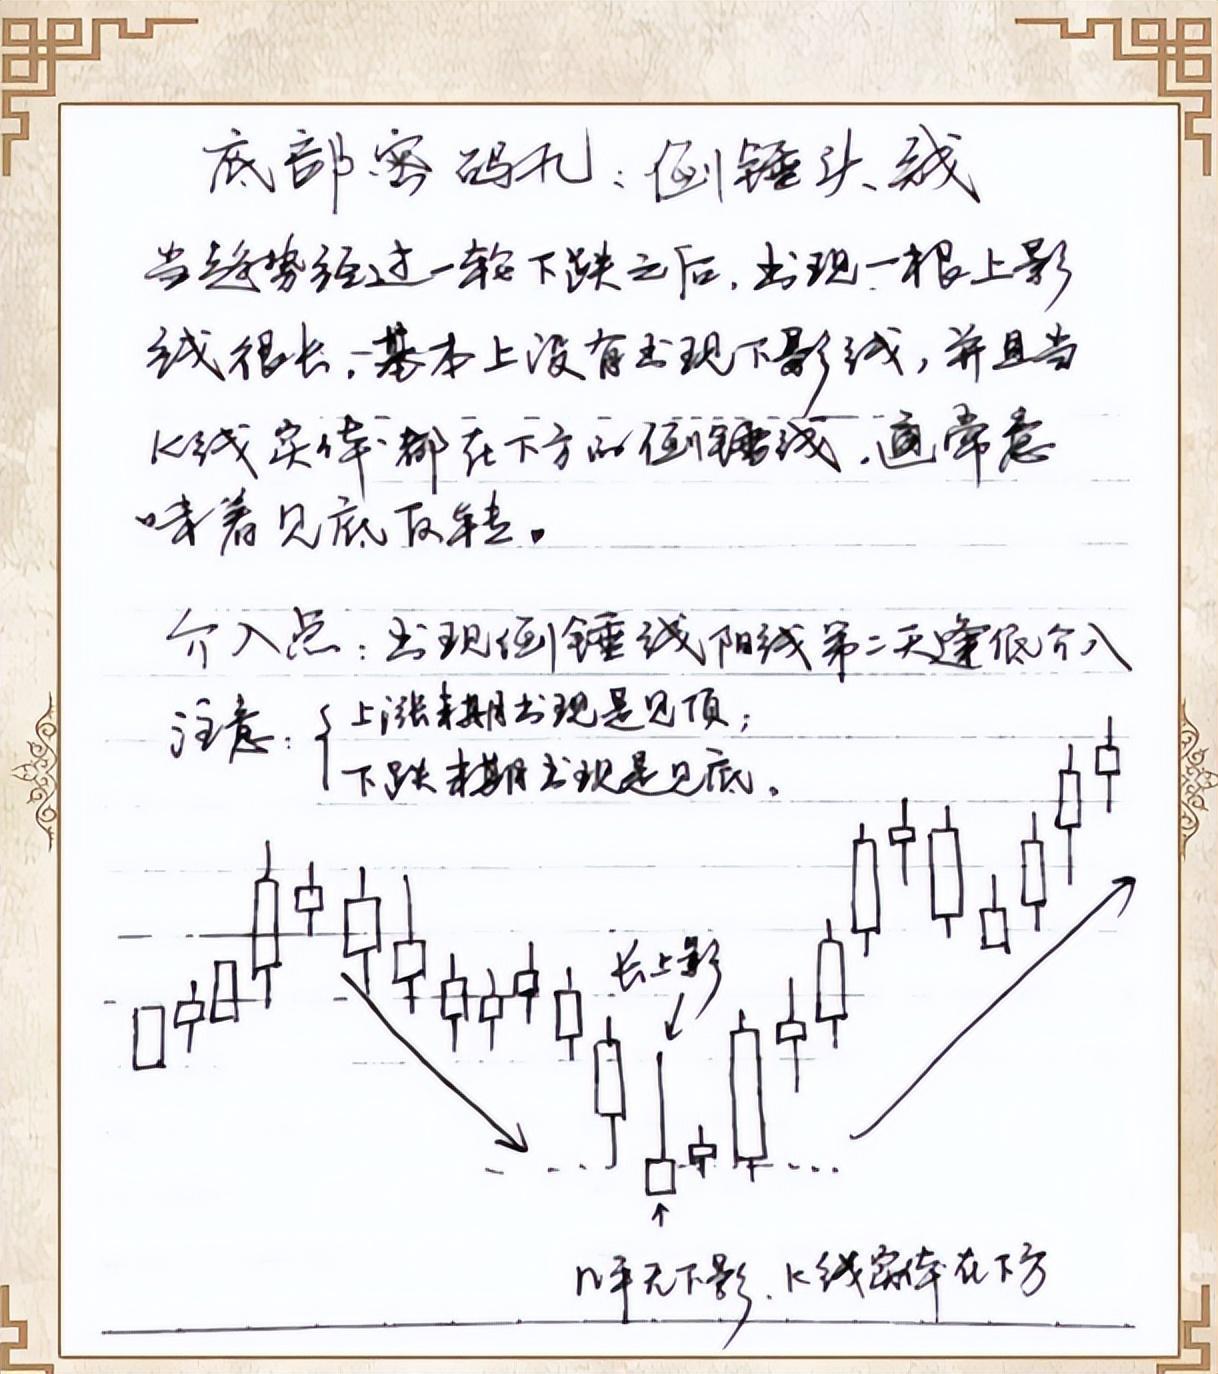 底部密码九：倒锤头线
当趋势经过一轮下跌之后，出现一根上影
线很长，基本上没有出现下影线，并且当
K线实体都在下方的倒锤线，通常意
味着见底反转。
介入点：出现倒锤线阳线第二天逢低介入
注意：上涨末期出现是见顶；
下跌末期出现是见底。
长上影
几乎无下影、K线实体在下方